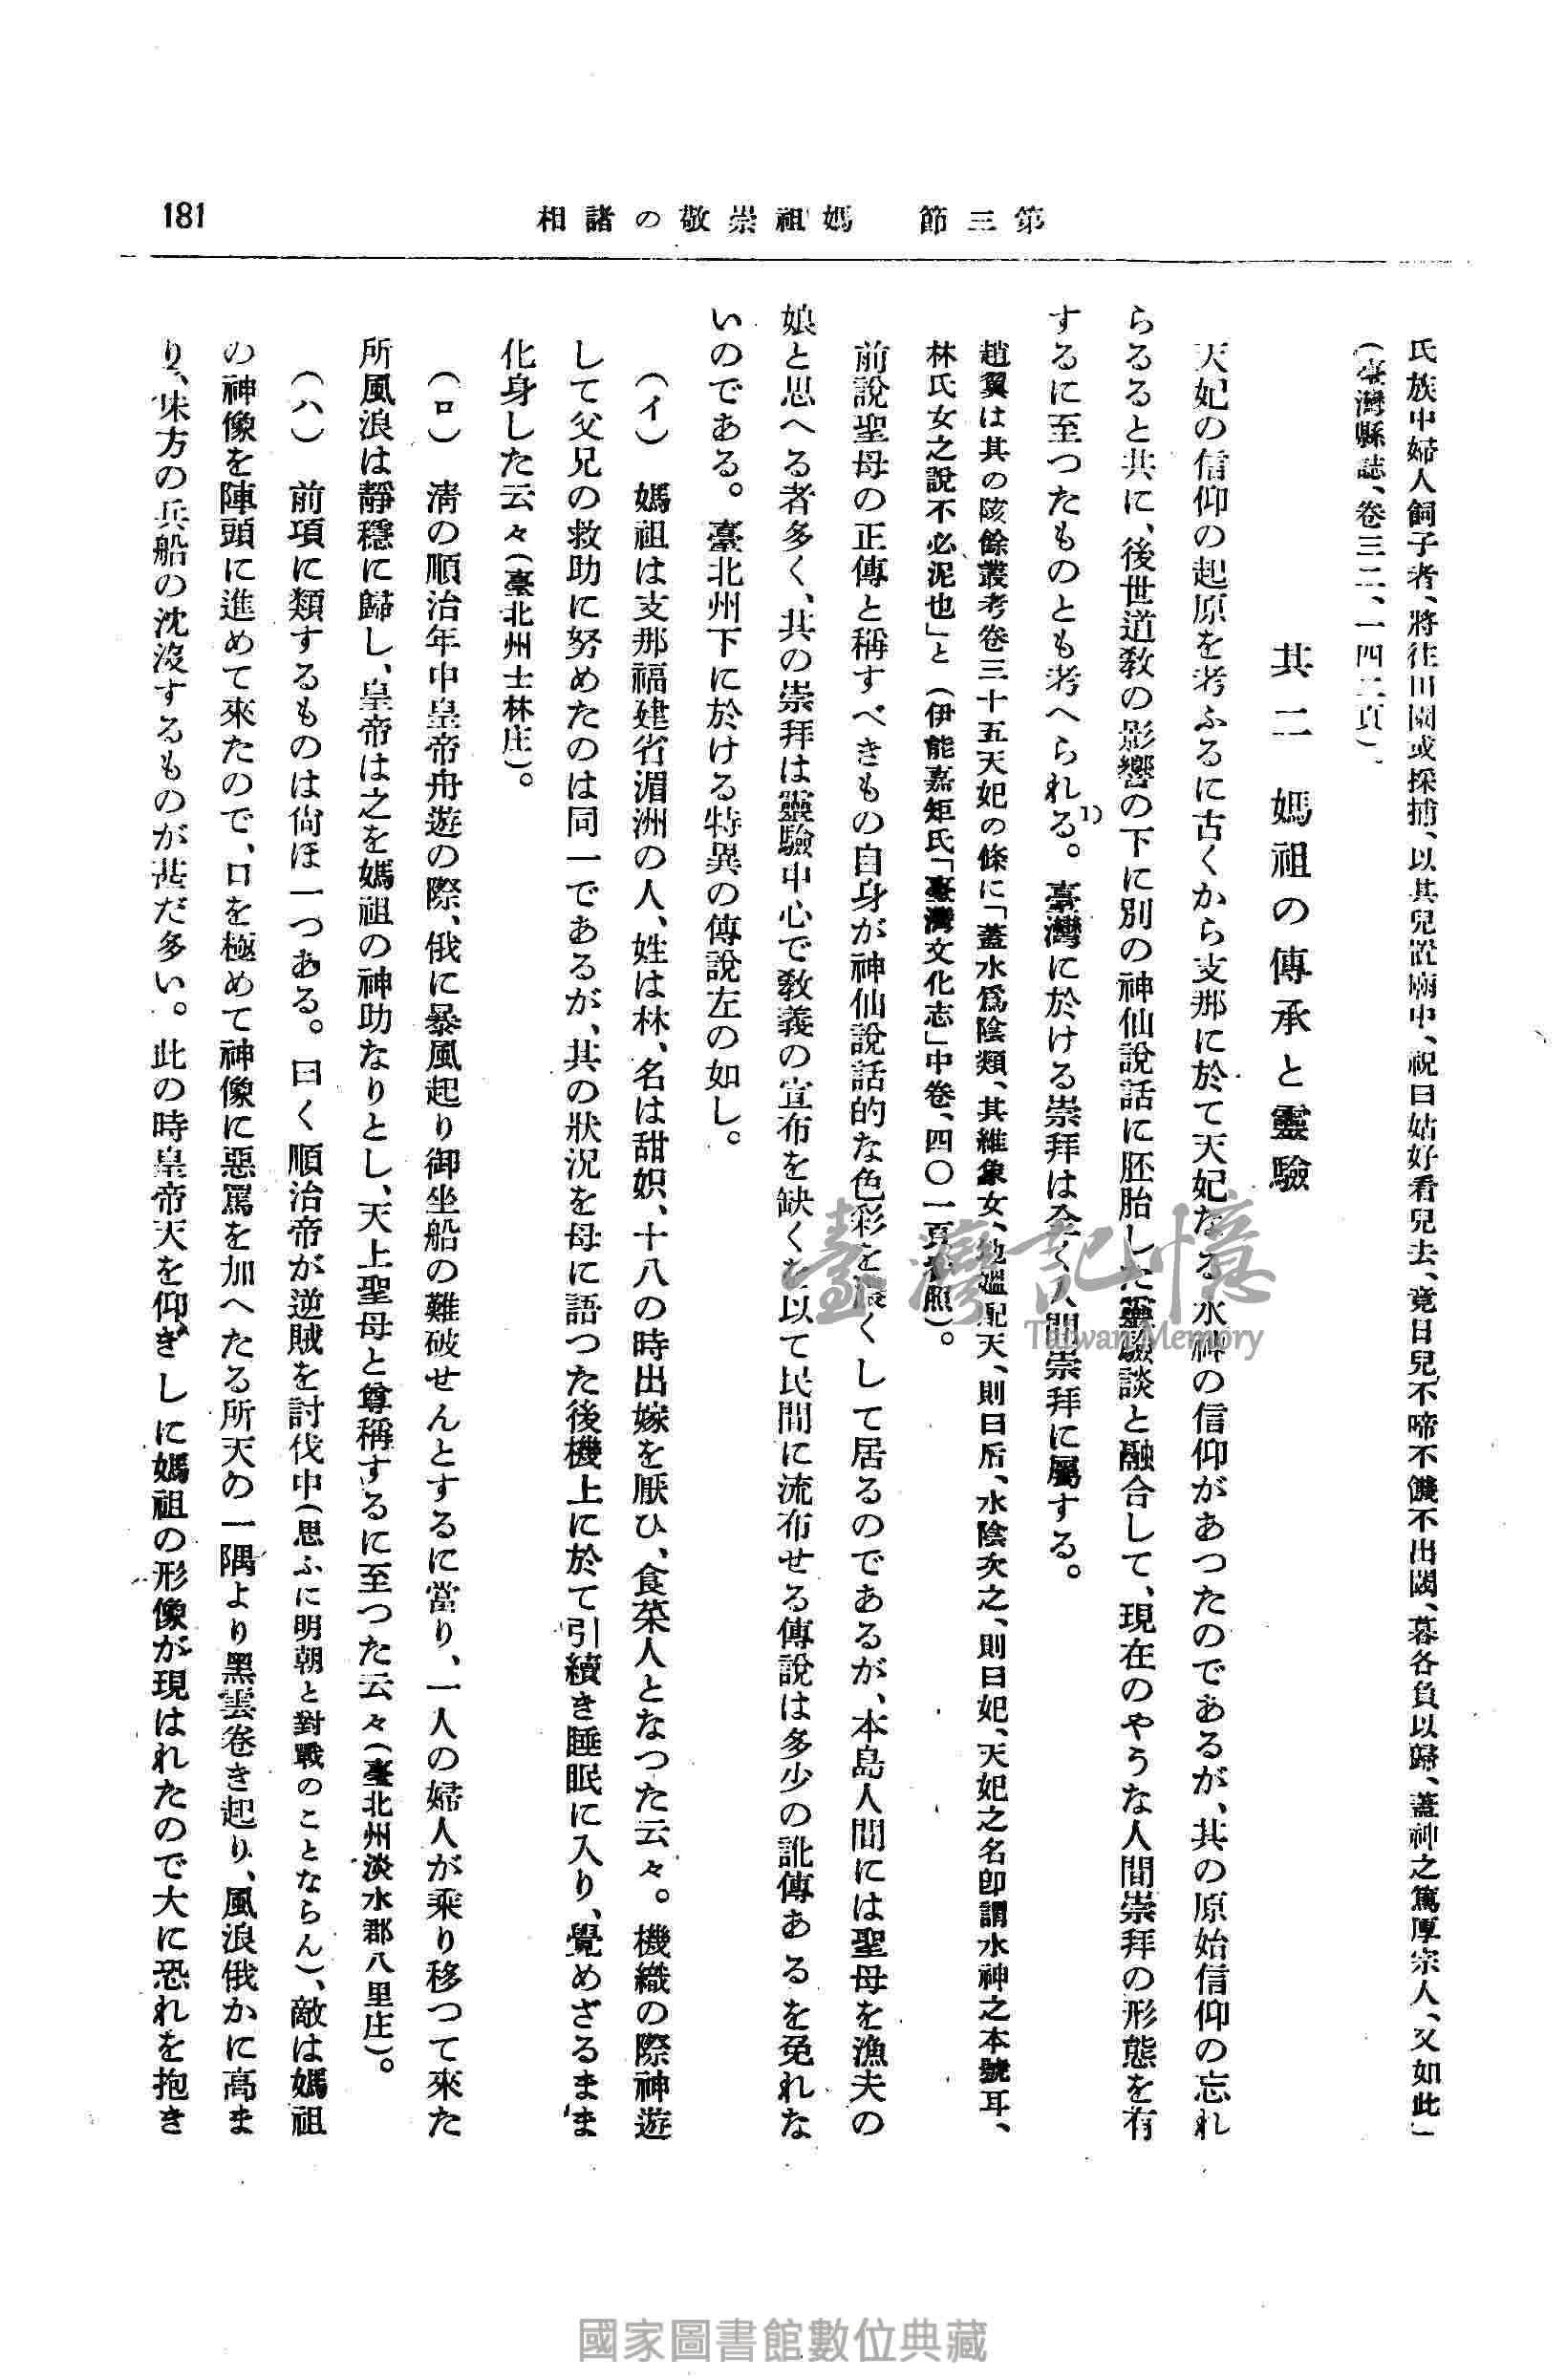 181
第三節　媽祖崇敬の諸相
氏族中婦人飼子者、將往田園或採捕、以其兒置廟中、祝曰姑好看兒去、竟日兒不啼不饑不出閾、暮各負以歸、蓋神之篤厚宗人、又如此」
（臺灣縣誌、卷三二、一四二頁）、
其二　媽祖の傳承と靈驗
天妃の信仰の起原を考ふるに古くから支那に於て天妃なる水神の信仰があつたのであるが、其の原始信仰の忘れ
らるると共に、後世道教の影響の下に別の神仙說話に胚胎した靈驗談と融合して、現在のやうな人間崇拜の形態を有
するに至つたものとも考へられる。1) 臺灣に於ける崇拜は全く人間崇拜に屬する。
趙翼は其の陔餘叢考卷三十五天妃の條に「蓋水爲陰類、其維象女、地媼配天、則曰后、水陰次之、則曰妃、天妃之名卽謂水神之本號耳、
林氏女之說不必泥也」と（伊能嘉矩氏「臺灣文化志」中卷、四〇一頁參照）。
前說聖母の正傳と稱すべきもの自身が神仙說話的な色彩を濃くして居るのであるが、本島人間には聖母を漁夫の
娘と思へる者多く、其の崇拜は靈驗中心で敎義の宣布を缺くを以て民間に流布せる傳說は多少の訛傳あるを免れな
いのである。臺北州下に於ける特異の傳說左の如し。
（イ）　媽祖は支那福建省湄洲の人、姓は林、名は甜娘、十八の時出嫁を厭ひ、食菜人となつた云々。機織の際神遊
して父兄の救助に努めたのは同一であるが、其の狀況を母に語つた後機上に於て引續き睡眠に入り、覺めざるまま
化身した云々（臺北州士林庄）。
（ロ）　淸の順治年中皇帝舟遊の際、俄に暴風起り御坐船の難破せんとするに當り、一人の婦人が乘り移つて來た
所風浪は靜穩に歸し、皇帝は之を媽祖の神助なりとし、天上聖母と尊稱するに至つた云々（臺北州淡水郡八里庄）。
（ハ）　前項に類するものは尙ほ一つある。曰く順治帝が逆賊を討伐中（思ふに明朝と對戰のことならん）、敵は媽祖
の神像を陣頭に進めて來たので、口を極めて神像に惡罵を加へたる所天の一隅より黑雲卷き起り、風浪俄かに高ま
り、味方の兵船の沈沒するものが甚だ多い。此の時皇帝天を仰ぎしに媽祖の形像が現はれたので大に恐れを抱き
臺灣記憶
Taiwan Memory
國家圖書館數位典藏